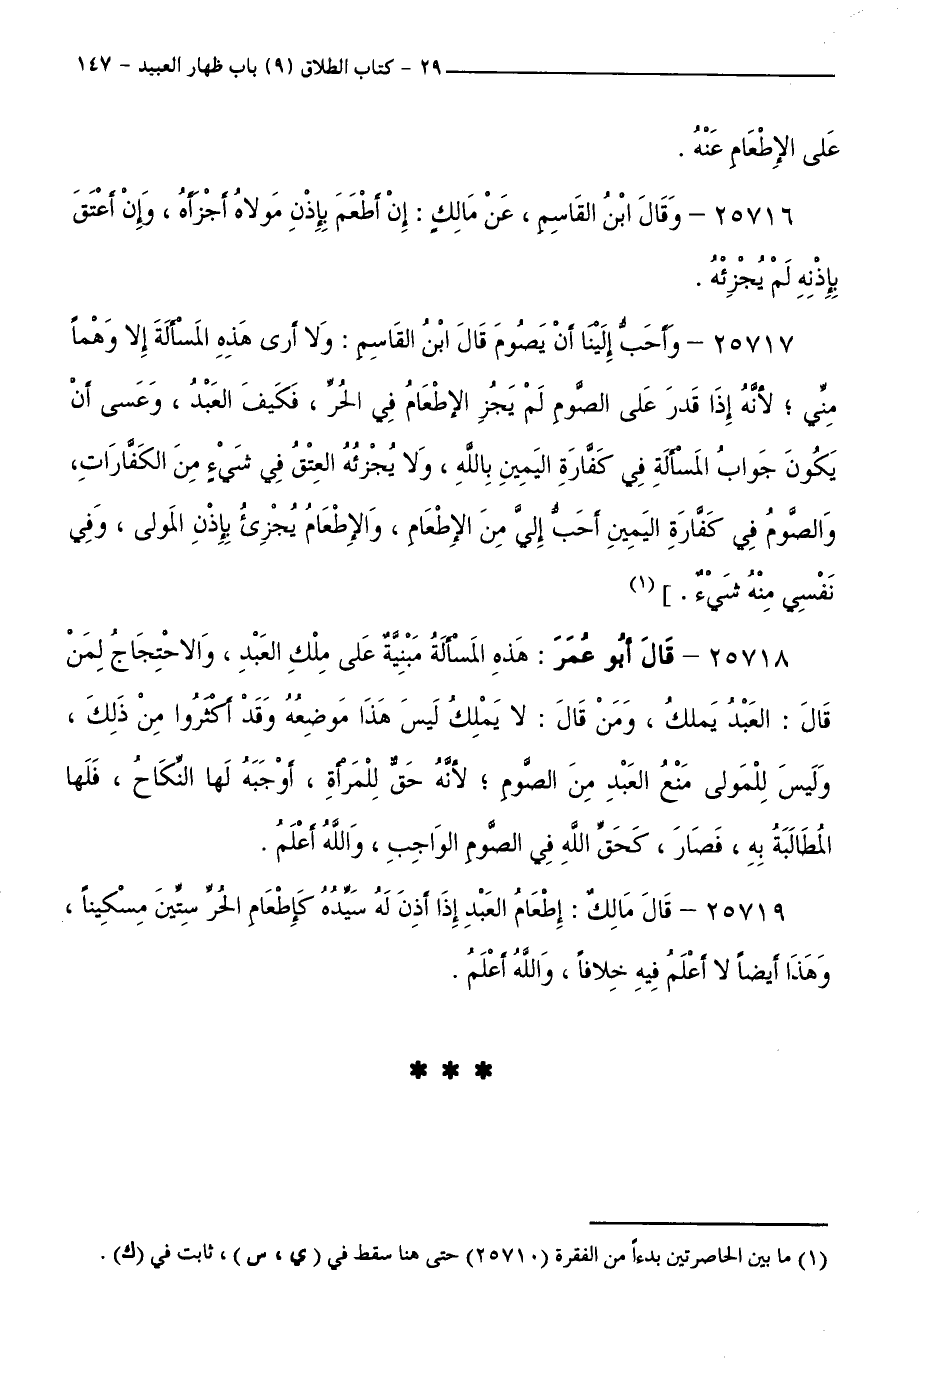 ٢٩ - كتاب الطلاق (٩) باب ظهار العبيد - ١٤٧
عَلى الإِطْعَامِ عَنْهُ .
٢٥٧١٦ - وَقَالَ ابْنُ القَاسِمِ ، عَنْ مَالِكٍ : إِنْ أَطْعَمَ بِإِذْنِ مَولاهُ أجْزَأهُ ، وَإِنْ أعْتَقَ
بِإِذْنِهِ لَمْ يُجْزِئْهُ .
٢٥٧١٧ - وَأَحَبُّ إِلَيْنَا أنْ يَصُومَ قَالَ ابْنُ القَاسِمِ : وَلا أرى هَذِهِ المَسْأَلَةَ إِلا وَهْماً
مِنِّي ؛ لأَنَّهُ إِذَا قَدرَ عَلى الصَّومِ لَمْ يَجُزِ الإطْعَامُ فِي الحُرِّ ، فَكَيفَ العَبْدُ ، وَعَسى أنْ
يَكُونَ جَوابُ المَسْأَلَةِ فِي كَفَّارَةِ اليَمِينِ بِاللَّهِ ، وَلا يُجْزِئُهُ العِتْقُ فِي شَيْءٍ مِنَ الكَفَّارَاتِ،
وَالصَّومُ فِي كَفَّارَةِ اليَمِينِ أحَبُّ إِليَّ مِنَ الإِطْعَامِ ، وَالإِطْعَامُ يُجْزِئُ بِإِذْنِ المَولى ، وَفِي
نَفْسِي مِنْهُ شَيْءٌ . ] (١)
٢٥٧١٨ - قَالَ أَبُو عُمَرَ : هَذهِ المَسْأَلَةُ مَبْنِيَّةٌ عَلى مِلْكِ العَبْدِ ، وَالاحْتِجَاجُ لِمَنْ
قَالَ : العَبْدُ يَملكُ ، وَمَنْ قَالَ : لا يَمْلِكُ لَيسَ هَذَا مَوضِعهُ وَقَدْ أكْثَرُوا مِنْ ذَلِكَ ،
وَلَيسَ لِلْمَولى مَنْعُ العَبْدِ مِنَ الصَّومِ ؛ لأَنَّهُ حَقٌّ لِلْمَرأَةِ ، أوْجَبَهُ لَها النِّكَاحُ ، فَلَها
المُطَالَبَةُ بِهِ ، فَصَارَ ، كَحَقِّ اللَّهِ فِي الصَّومِ الوَاجِبِ ، وَاللَّهُ أعْلَمُ .
٢٥٧١٩ - قَالَ مَالِكٌ : إِطْعَامُ العَبْدِ إِذَا أذِنَ لَهُ سَيِّدُهُ كَإِطْعَامِ الحُرِّ سِتِّينَ مِسْكِيناً ،
وَهَذَا أيضاً لا أعْلَمُ فِيهِ خِلافاً ، وَاللَّهُ أعْلَمُ .
* * *
(١) ما بين الحاصرتين بدءاً من الفقرة (٢٥٧١٠) حتى هنا سقط في ( ي ، س ) ، ثابت في (ك) .